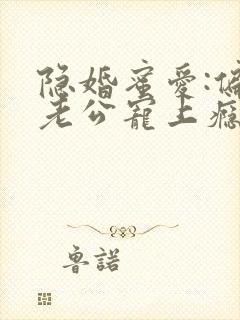 隐婚蜜爱:偏
老公宠上瘾
鲁諾